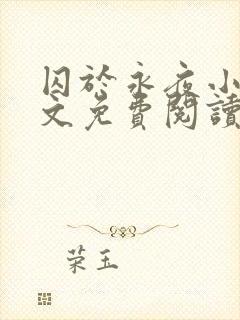 囚於永夜小
文免費閱讀
荣玉